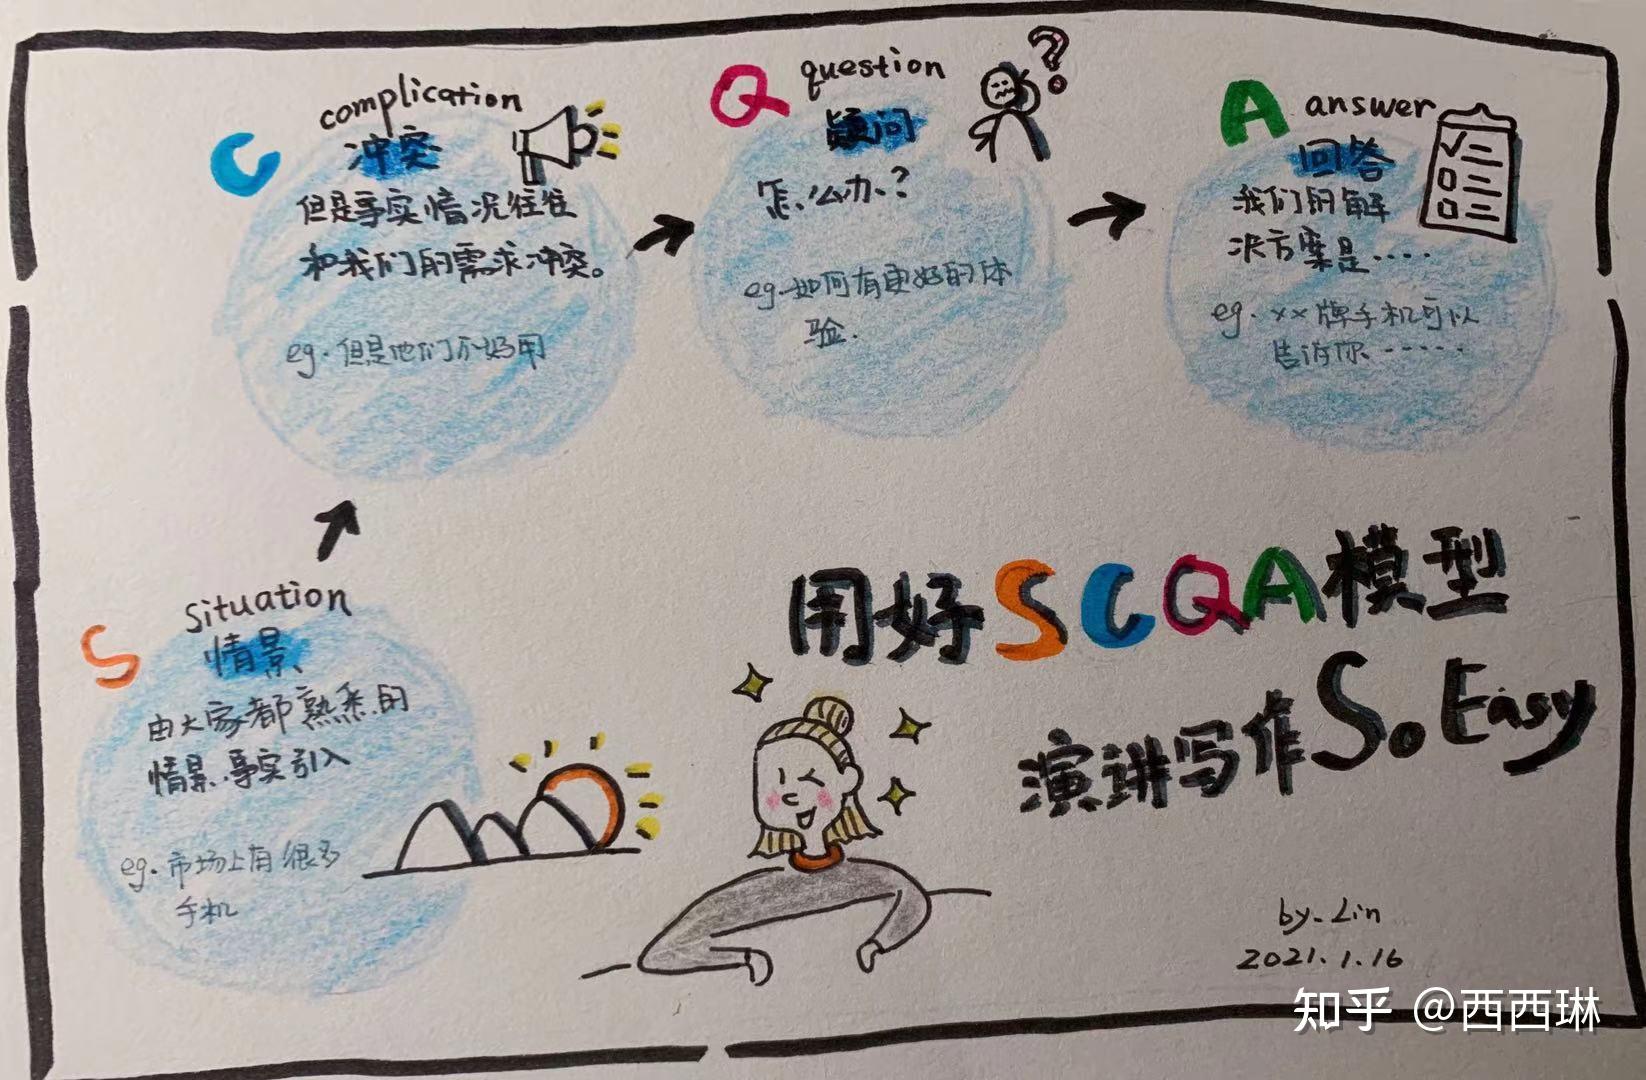 S
situation
情景
由大家都熟悉的
情景、事实引入
eg. 市场上有很多
手机
C
complication
冲突
但是事实情况往往
和我们的需求冲突。
eg. 但是他们不好用
Q
question
疑问
怎么办?
eg. 如何有更好的体
验.
?
A
answer
回答
我们的解
决方案是....
eg. ××牌手机可以
告诉你......
用好SCQA模型
演讲写作So Easy
by. Lin
2021.1.16
知乎 @西西琳